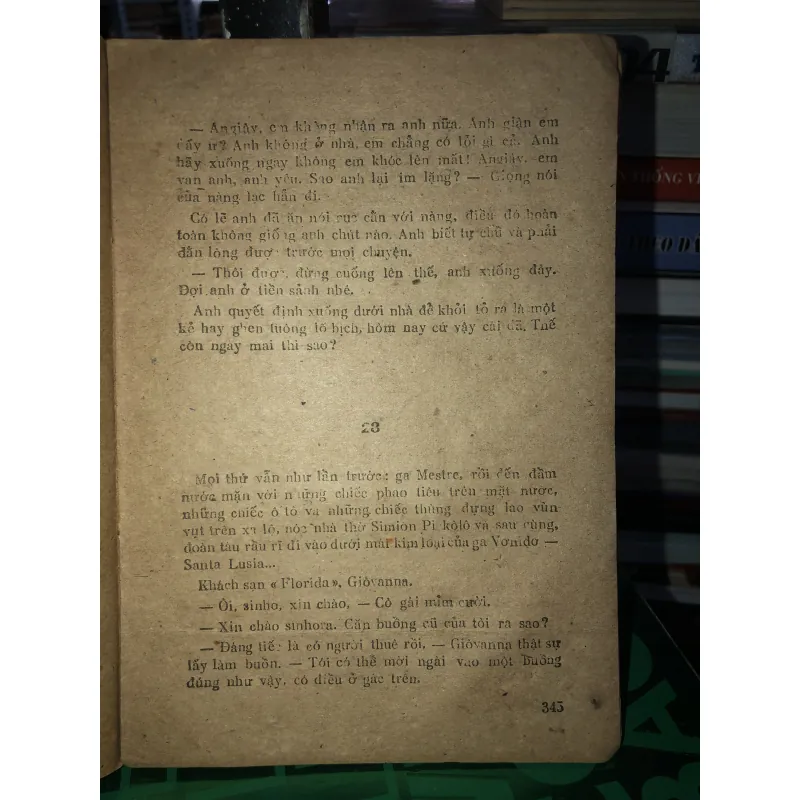 — Angiây, em không nhận ra anh nữa. Anh giận em
đấy ư? Anh không ở nhà, em chẳng có lỗi gì cả. Anh
hãy xuống ngay không em khóc lên mất! Angiây, em
van anh, anh yêu. Sao anh lại im lặng? — Giọng nói
của nàng lạc hẳn đi.
Có lẽ anh đã ăn nói cục cằn với nàng, điều đó hoàn
toàn không giống anh chút nào. Anh biết tự chủ và phải
dằn lòng được trước mọi chuyện.
— Thôi được, đừng cuống lên thế, anh xuống đây.
Đợi anh ở tiền sảnh nhé.
Anh quyết định xuống dưới nhà để khỏi tỏ ra là một
kẻ hay ghen tuông lố bịch, hôm nay cứ vậy cái đã. Thế
còn ngày mai thì sao?
28
Mọi thứ vẫn như lần trước: ga Mestre, rồi đến đầm
nước mặn với những chiếc phao tiêu trên mặt nước,
những chiếc ô tô và những chiếc thùng đựng lao vùn
vụt trên xa lộ, nóc nhà thờ Simion Pi kôlô và sau cùng,
đoàn tàu rầu rĩ đi vào dưới mái kim loại của ga Vơniđơ —
Santa Lusia...
Khách sạn « Florida », Giôvanna.
— Ôi, sinho, xin chào, — Cô gái mỉm cười.
— Xin chào sinhora. Căn buồng cũ của tôi ra sao?
— Đáng tiếc là có người thuê rồi, — Giôvanna thật sự
lấy làm buồn. — Tôi có thể mời ngài vào một buồng
đúng như vậy, có điều ở gác trên.
345